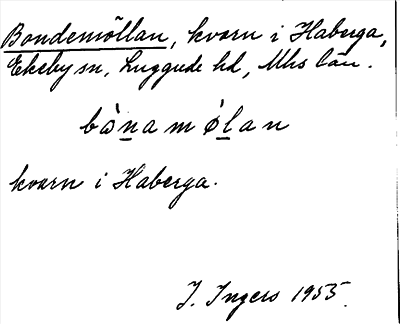 Bondemöllan, kvarn i Haberga,
Ekeby sn, Luggude hd, Mhs län.
bònamø̀lan
kvarn i Haberga.
I. Ingers 1955.